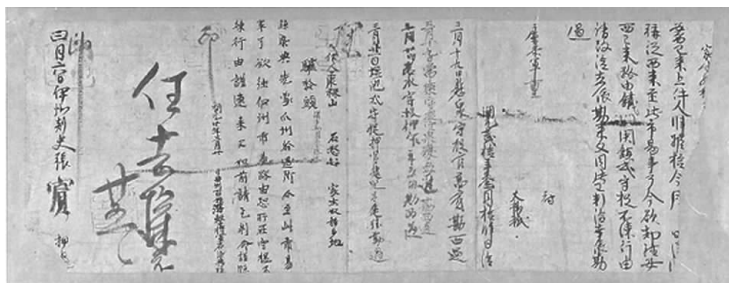 家生奴移
安西已來上件人肆驢拾今月 日得牒
稱從西來至此市易事了今欲却往安
西已來路由鐵門關鎮戍守捉不練行由
請改給者依勘來文同此已判給幸依勘
過
府
戶曹參軍亶
史楊祇
開元貳拾年叁月拾肆日給
三月十九日懸泉守捉官高賓勘西過
三月十九日常樂守捉官果毅孟進勘西過
三月廿日苦水守捉押官年五用勘西過
三月廿一日鹽池戍守捉押官健兒呂楚珪勘過
作人康祿山 石怒忿 家生奴移多地
驢拾頭
牒染典先蒙瓜州給過所今至此市易
事了欲往伊州市易路由恐所在守捉不
練行由謹連來文如前請乞判命謹牒
印 開元廿年三月廿 日西州百姓遊擊將軍石染典牒
任去琛示
廿五日
印
四月六日伊州刺史張賓 押過